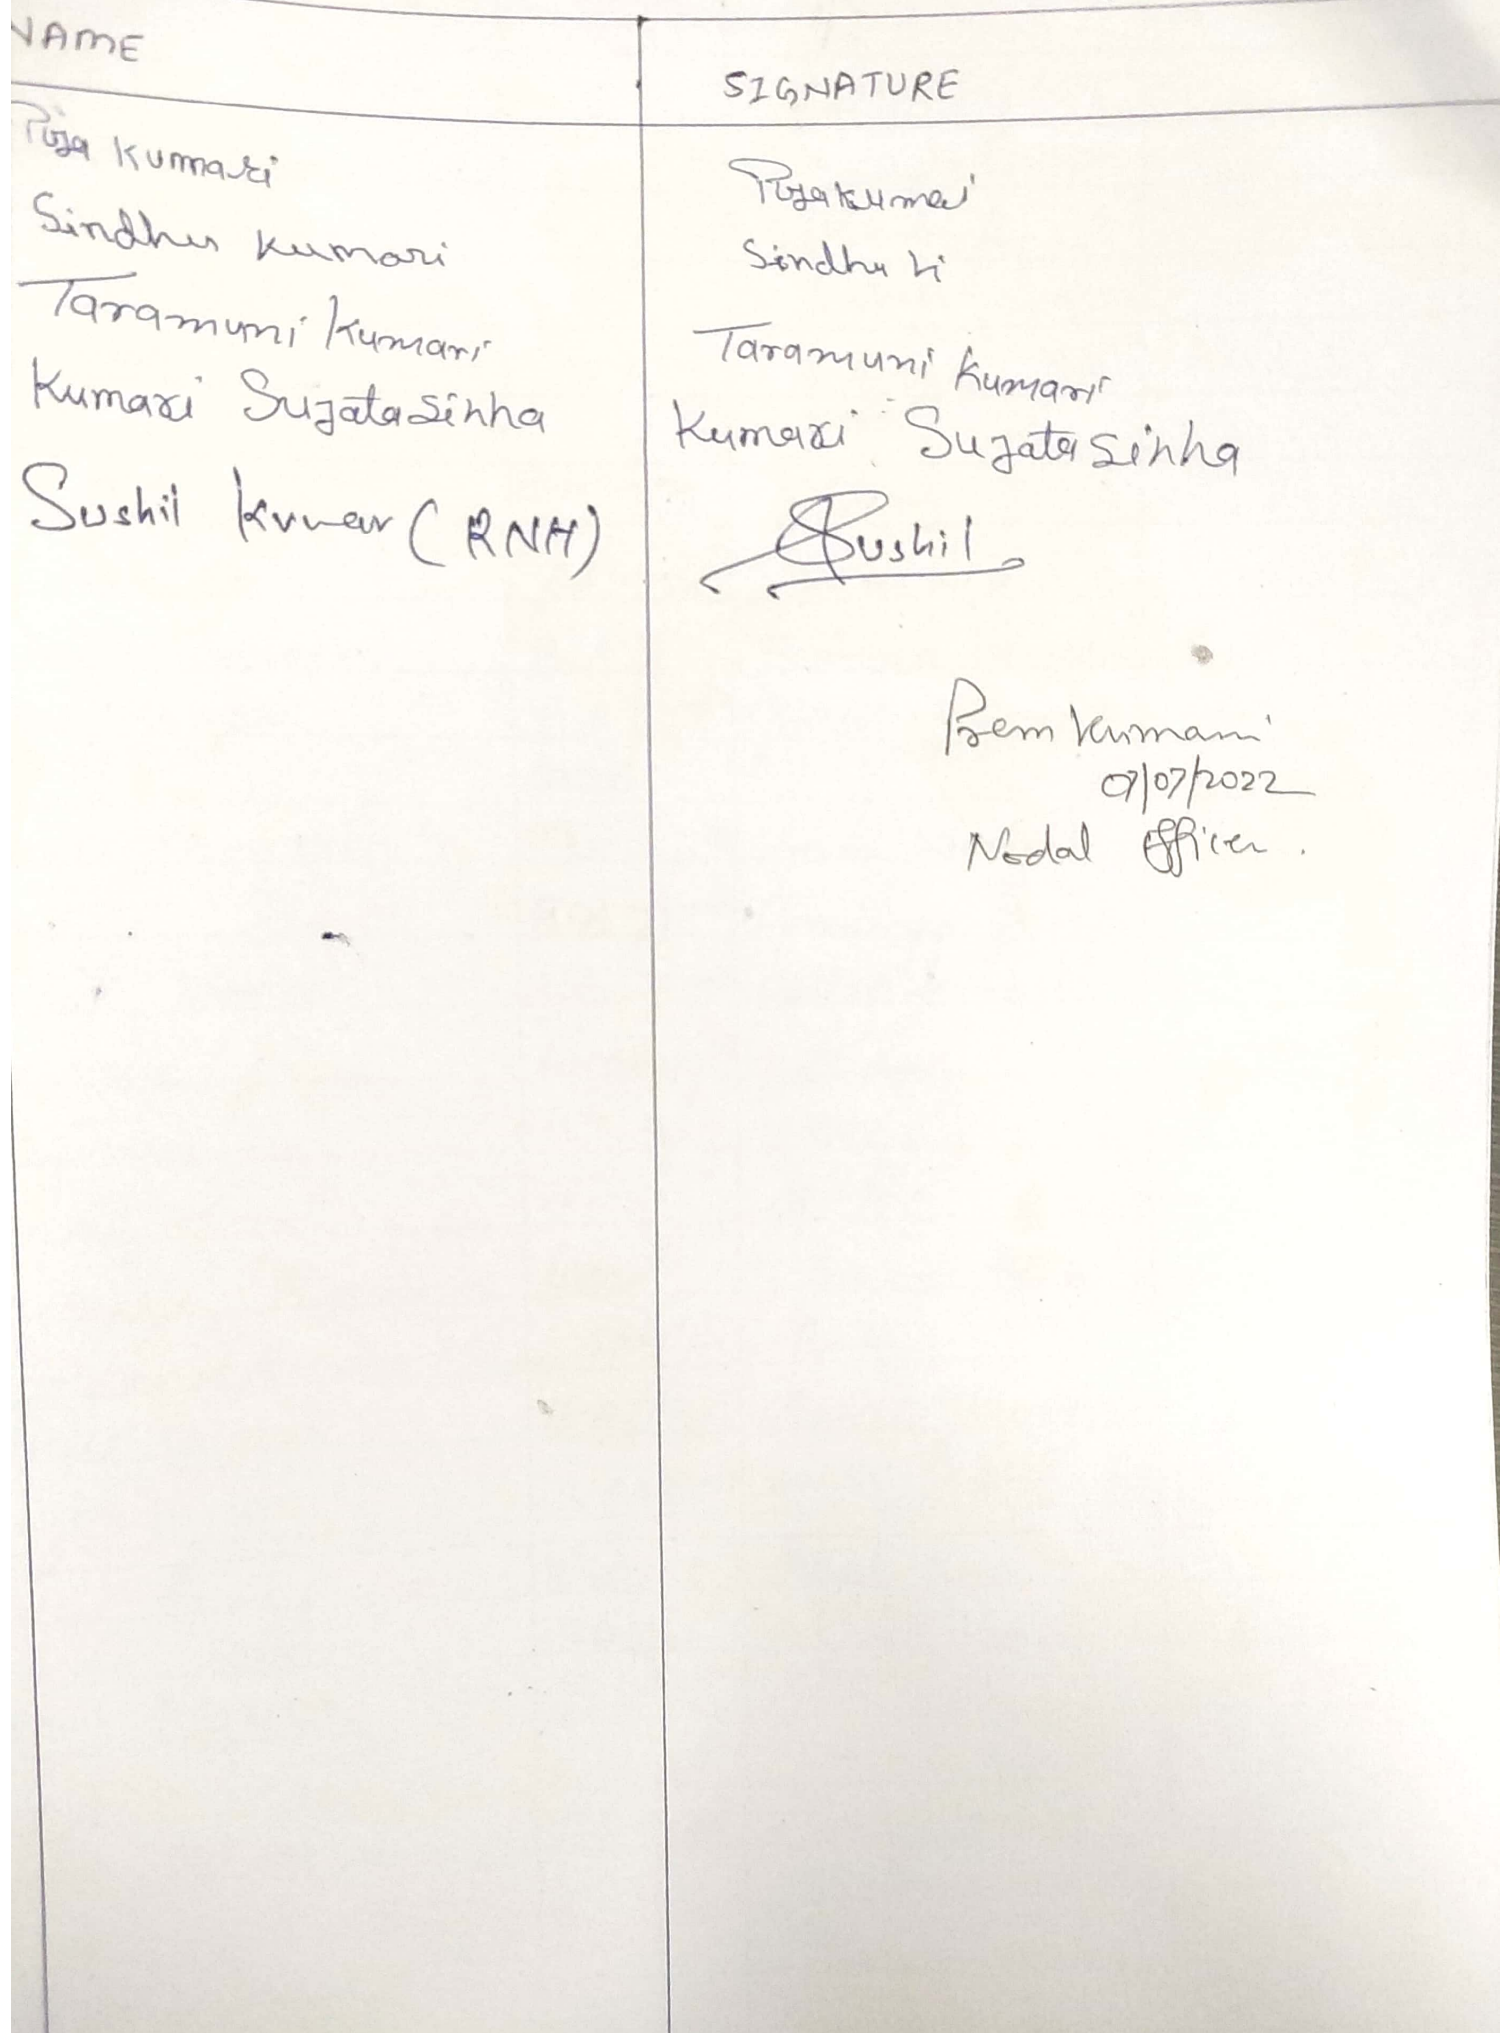 NAME SIGNATURE
Puja Kumari Puja Kumari
Sindhu Kumari Sindhu Ki
Taramuni Kumari Taramuni Kumari
Kumari Sujata Sinha Kumari Sujata Sinha
Sushil Kumar (RNH) Sushil
Prem Kumari
07/07/2022
Nodal Officer.